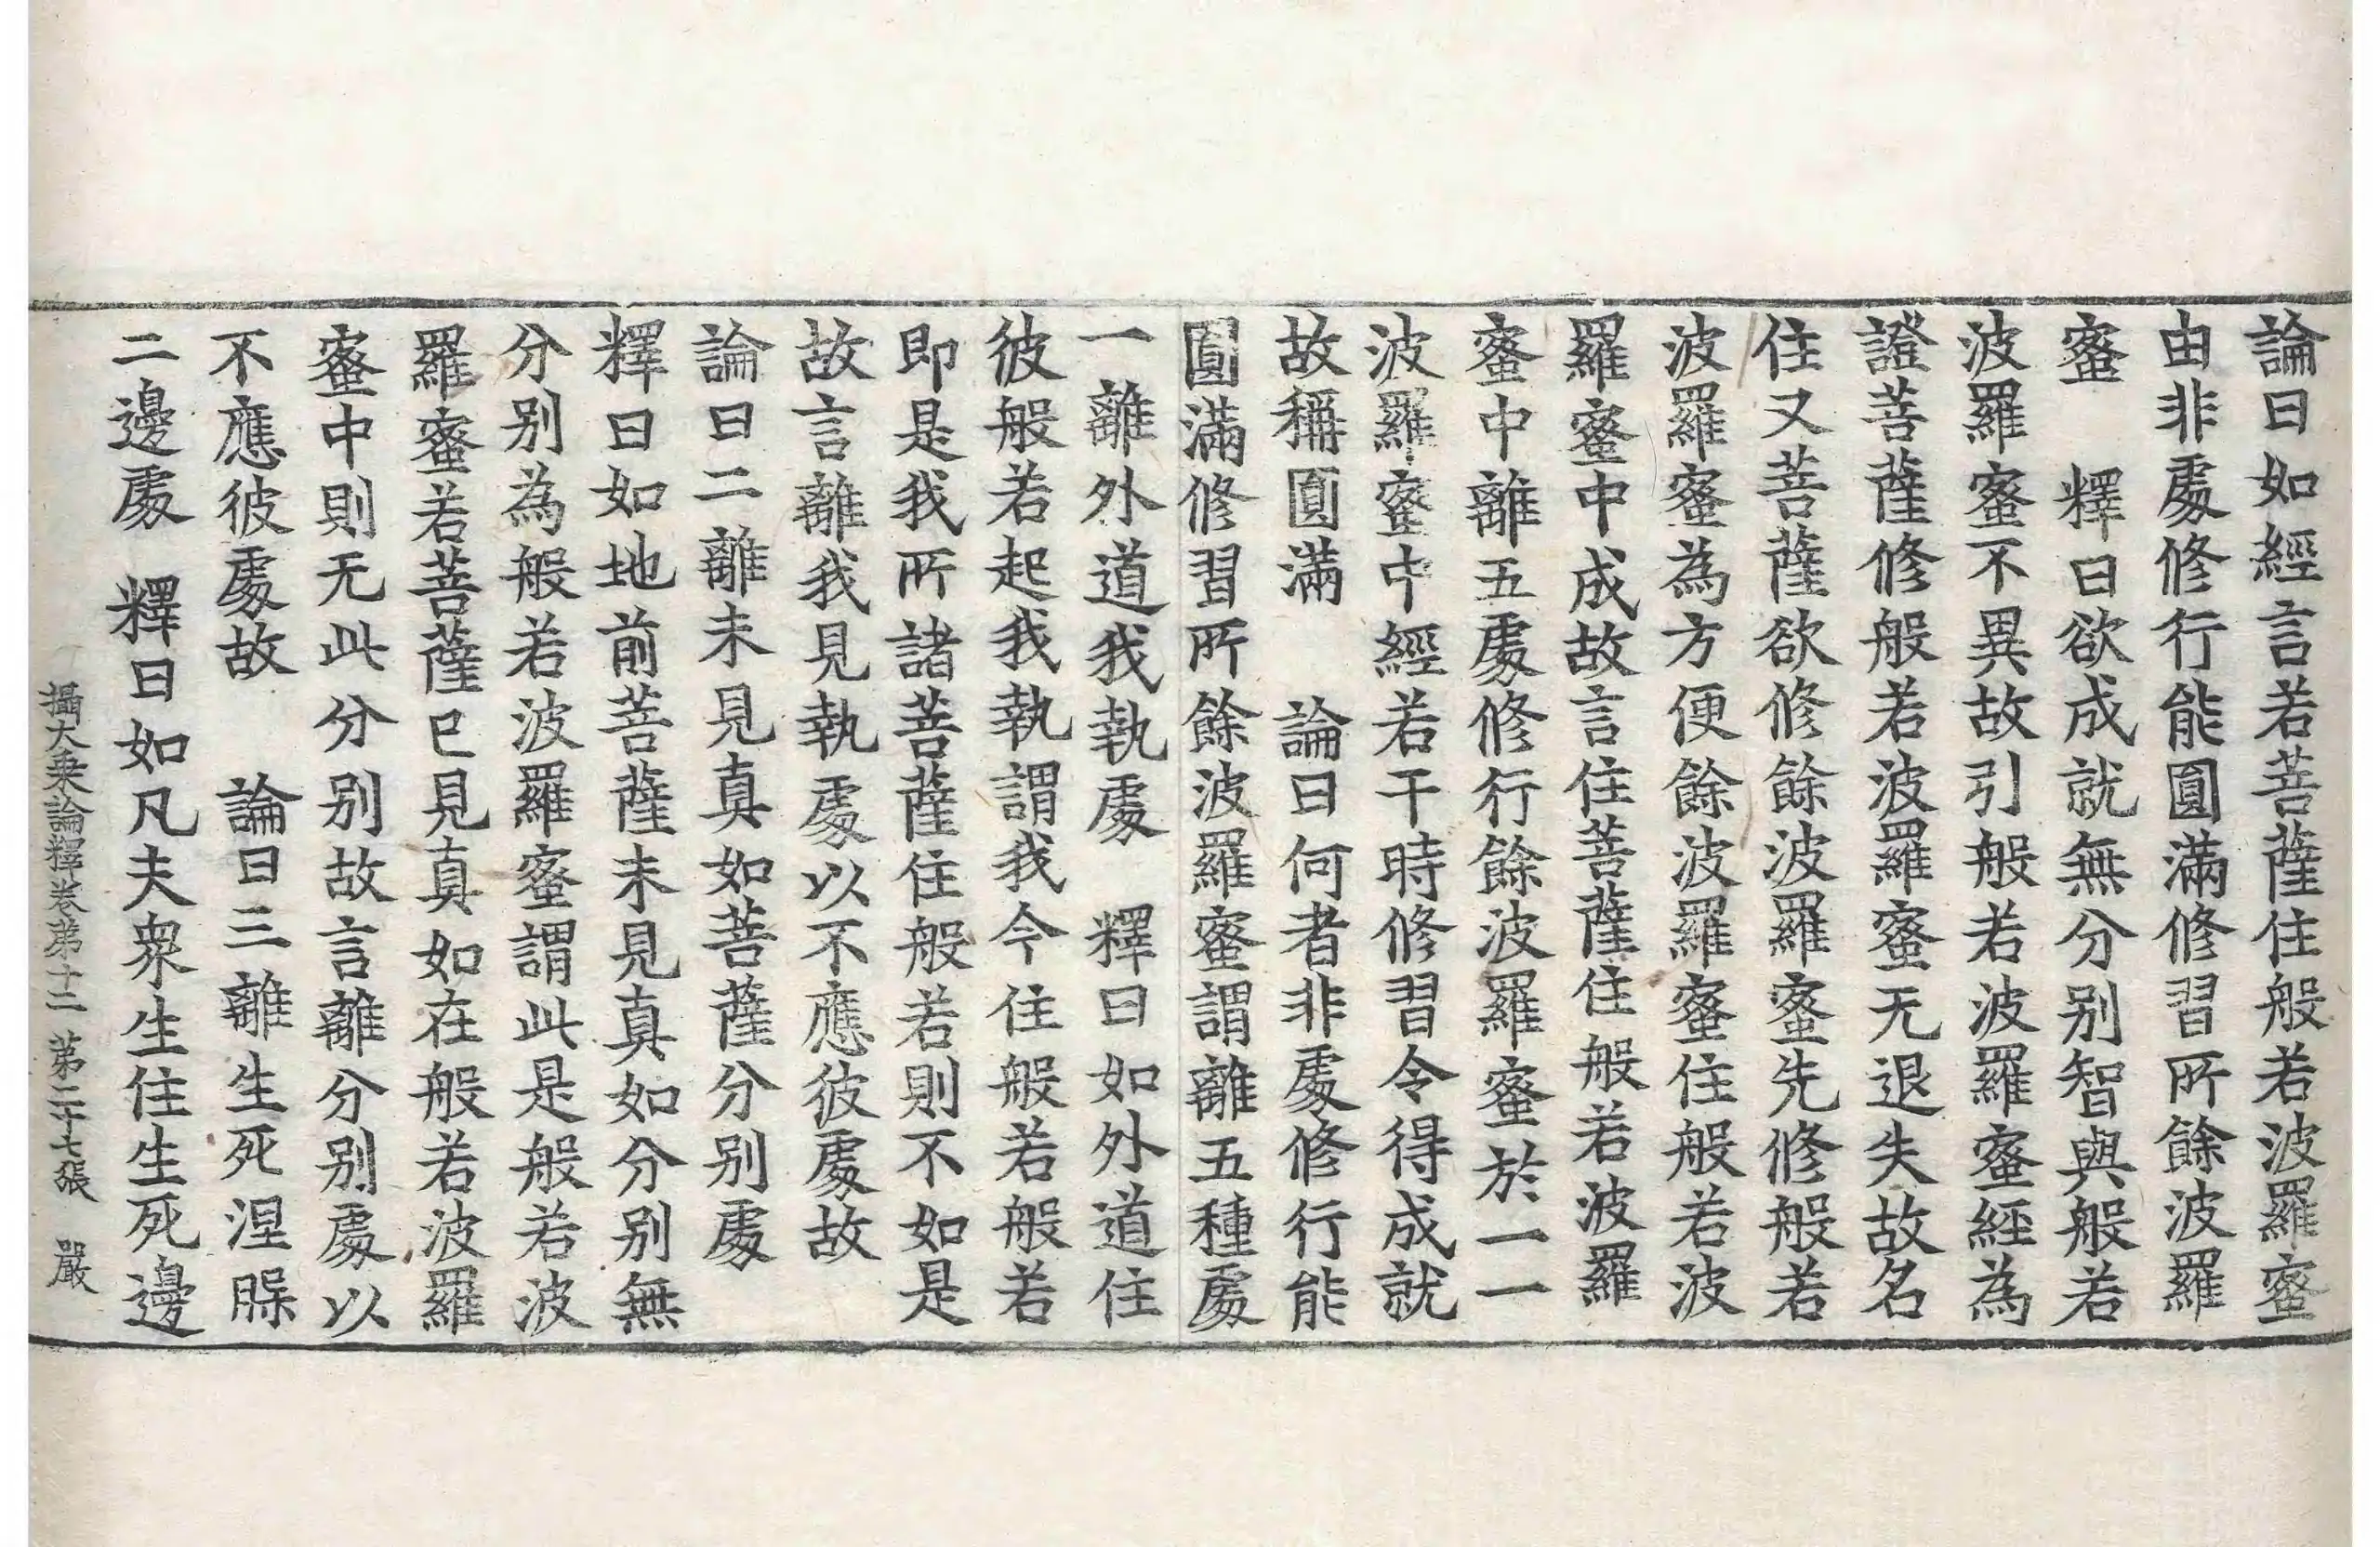 論曰如經言若菩薩住般若波羅蜜
由非處修行能圓滿修習所餘波羅
蜜　釋曰欲成就無分別智與般若
波羅蜜不異故引般若波羅蜜經為
證菩薩修般若波羅蜜无退失故名
住又菩薩欲修餘波羅蜜先修般若
波羅蜜為方便餘波羅蜜住般若波
羅蜜中成故言住菩薩住般若波羅
蜜中離五處修行餘波羅蜜於一一
波羅蜜中經若干時修習令得成就
故稱圓滿　論曰何者非處修行能
圓滿修習所餘波羅蜜謂離五種處
一離外道我執處　釋曰如外道住
彼般若起我執謂我今住般若般若
即是我所諸菩薩住般若則不如是
故言離我見執處以不應彼處故
論曰二離未見真如菩薩分別處
釋曰如地前菩薩未見真如分別無
分別為般若波羅蜜謂此是般若波
羅蜜若菩薩已見真如在般若波羅
蜜中則无此分別故言離分別處以
不應彼處故　論曰三離生死涅槃
二邊處　釋曰如凡夫衆生住生死邊
攝大乘論釋卷第十二　第二十七張　嚴